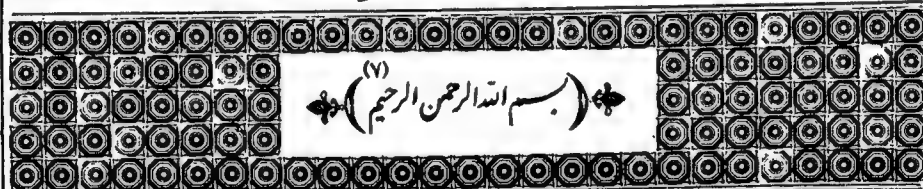 (بسم الله الرحمن الرحيم) (٧)